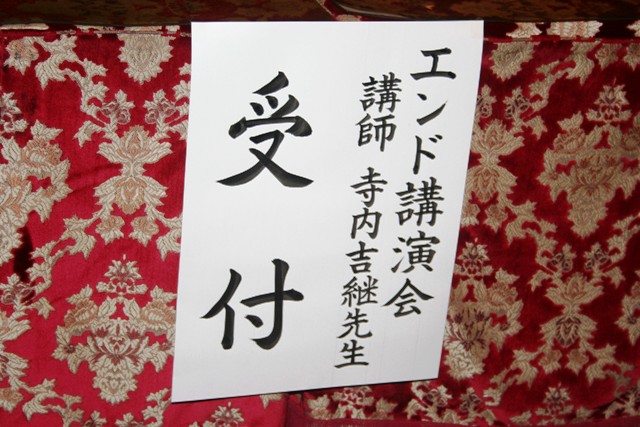 エンド講演会
講師 寺内吉継先生
受付